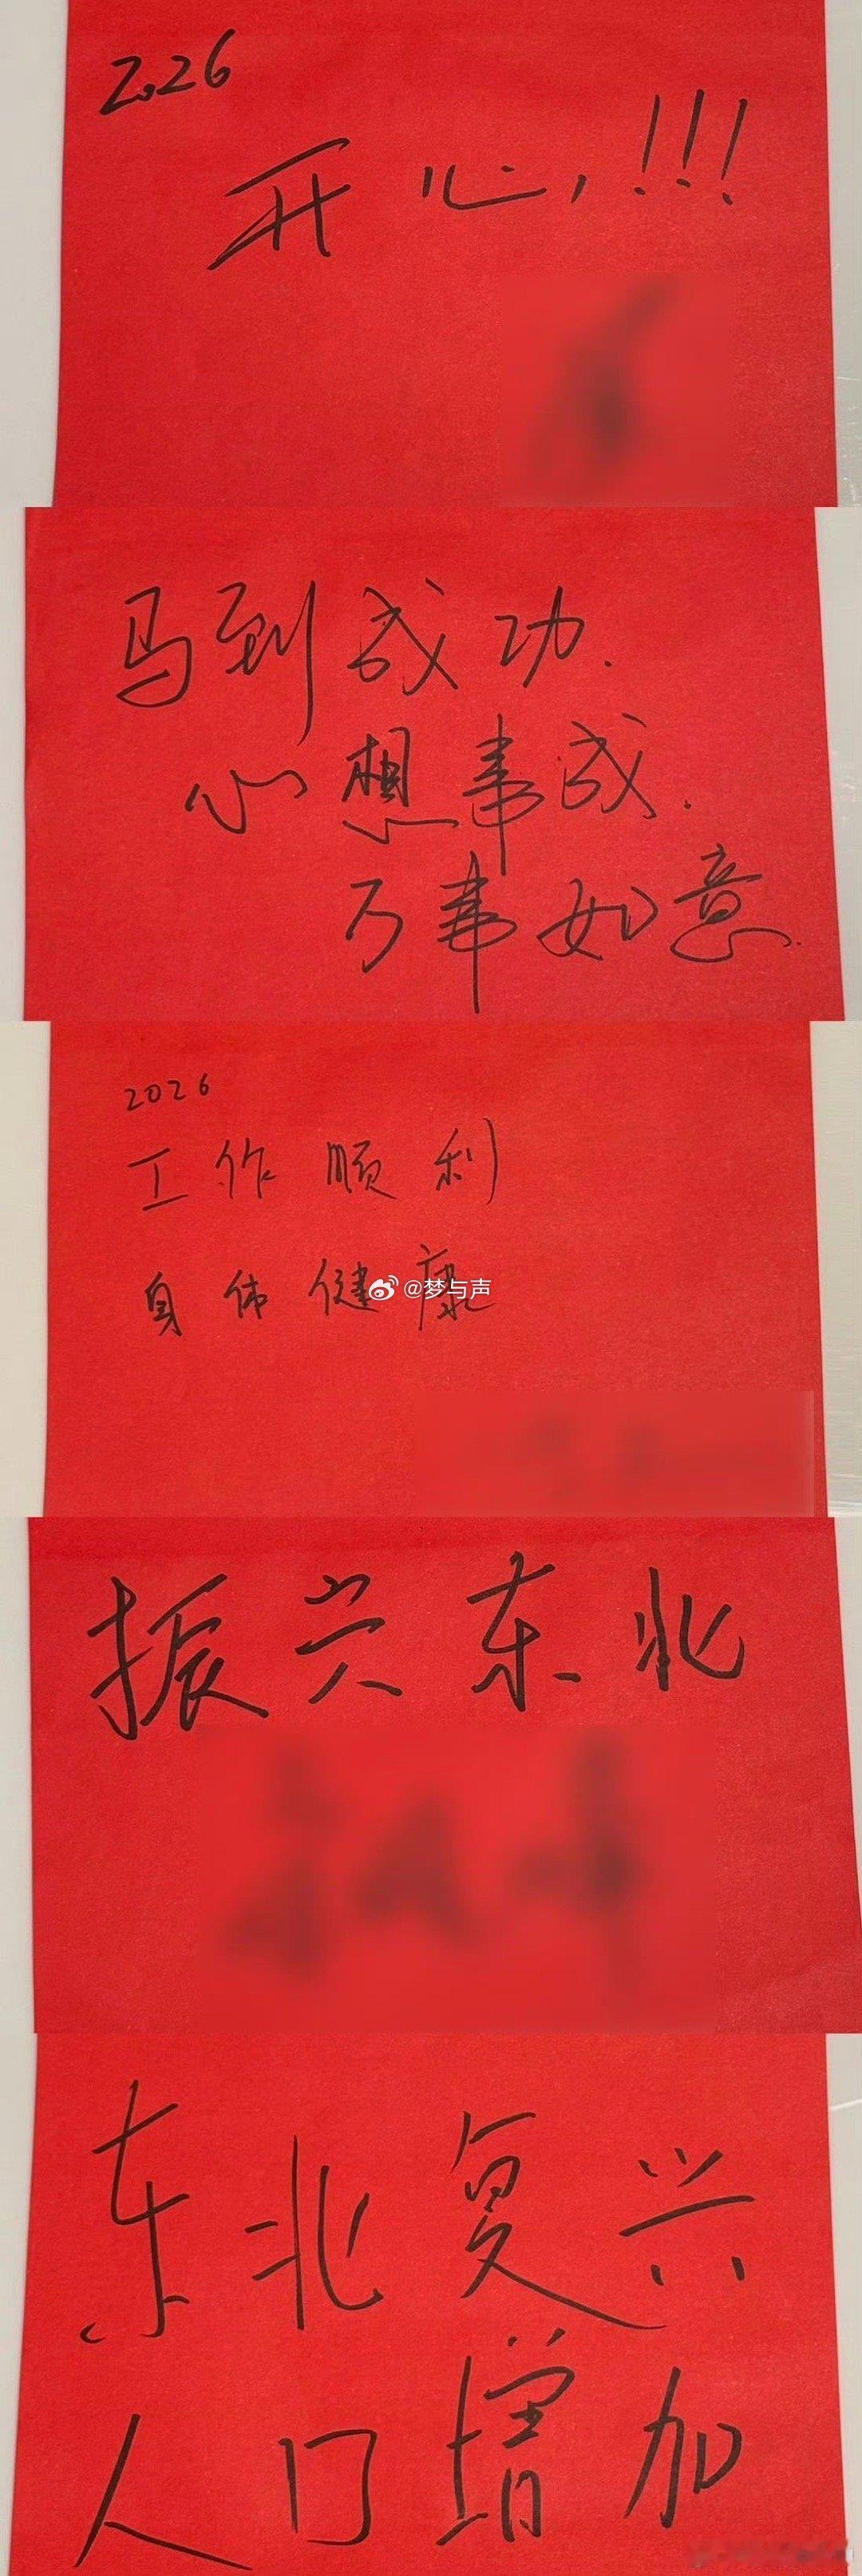 2026
开心,!!!
马到成功.
心想事成.
万事如意.
2026
工作顺利
身体健康
@梦与声
振兴东北
东北复兴
人口增加